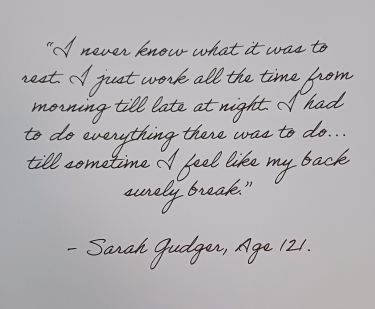 "I never know what it was to
rest. I just work all the time from
morning till late at night. I had
to do everything there was to do...
till sometime I feel like my back
surely break."
- Sarah Gudger, Age 121.